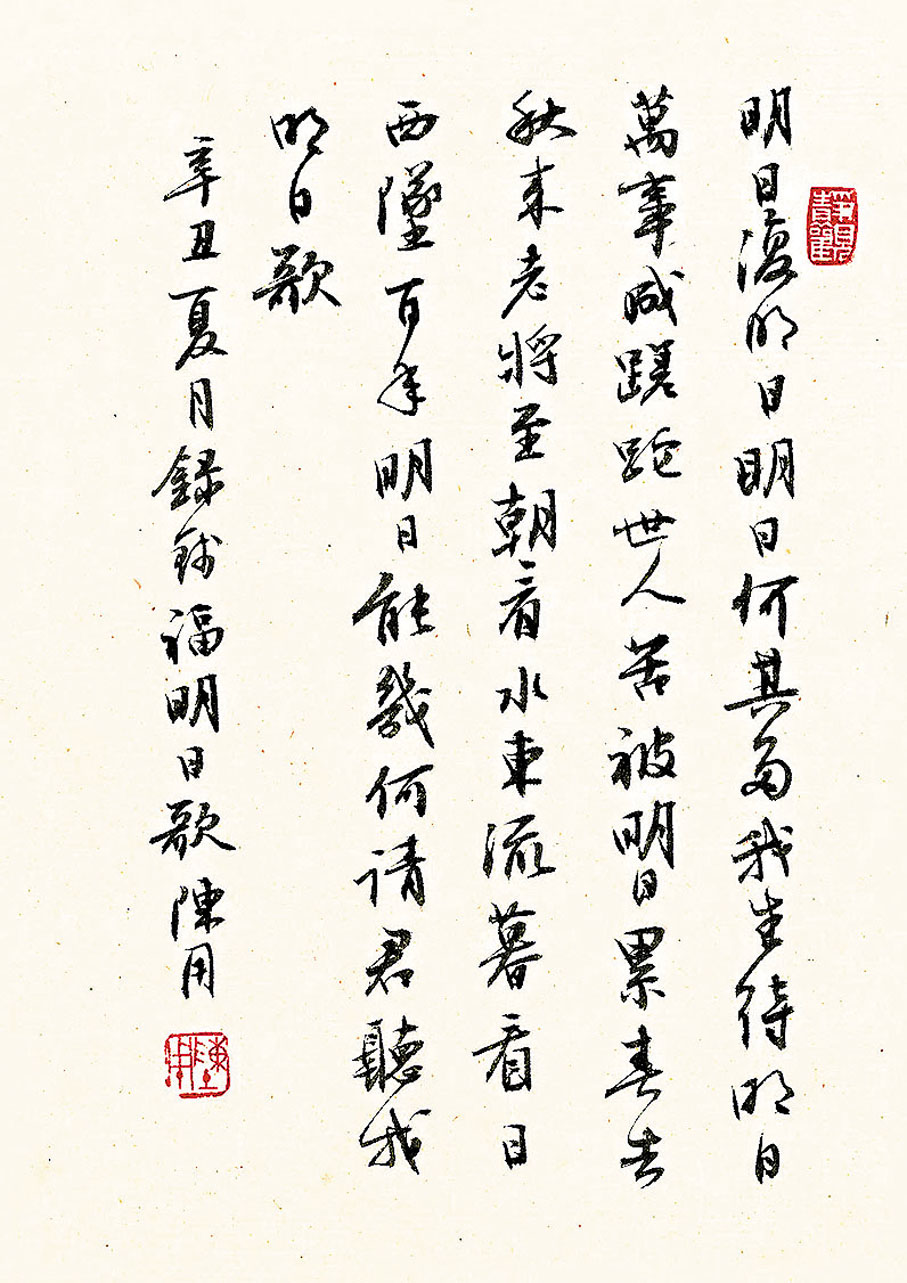 明日復明日明日何其多我生待明日
萬事成蹉跎世人苦被明日累春去
秋来老將至朝看水東流暮看日
西墜百年明日能幾何請君聽我
明日歌
辛丑夏月録錢福明日歌陳用